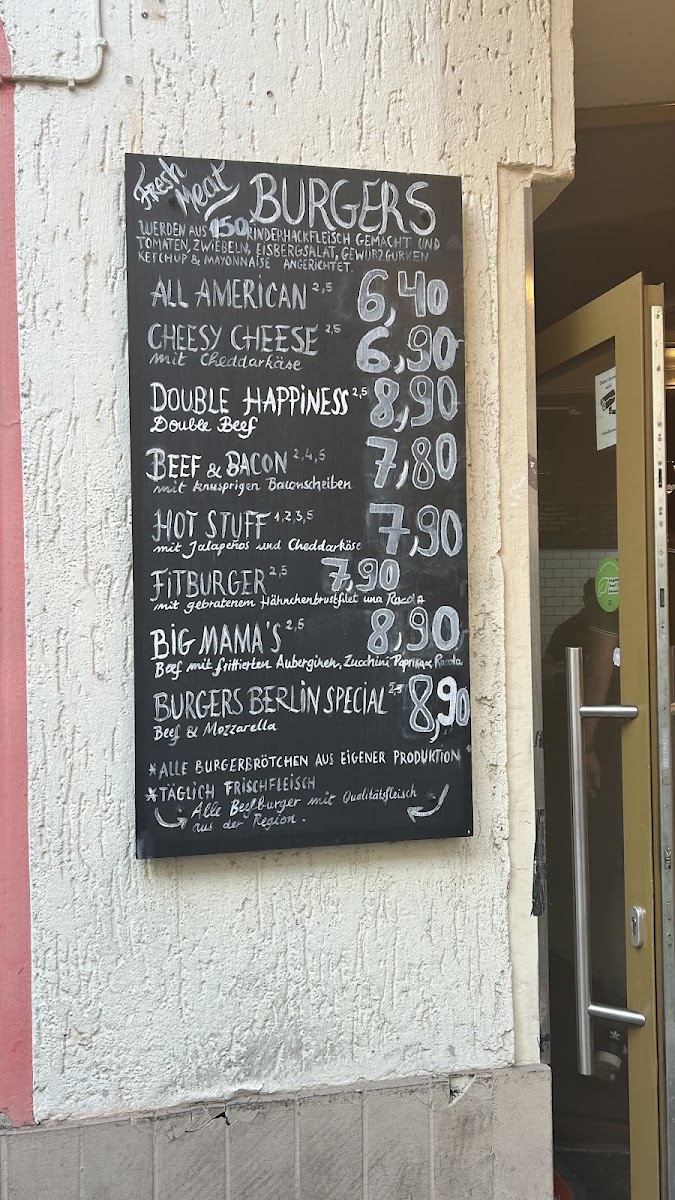 Fresh Meat BURGERS
WERDEN AUS 150 RINDERHACKFLEISCH GEMACHT UND
TOMATEN, ZWIEBELN, EISBERGSALAT, GEWÜRZGURKEN
KETCHUP & MAYONNAISE ANGERICHTET.
ALL AMERICAN 2,5 6,40
CHEESY CHEESE 2,5 6,90
mit Cheddarkäse
DOUBLE HAPPINESS 2,5 8,90
Double Beef
BEEF & BACON 2,4,5 7,80
mit knusprigen Baconscheiben
HOT STUFF 1,2,3,5 7,90
mit Jalapeños und Cheddarkäse
FITBURGER 2,5 7,90
mit gebratenem Hähnchenbrustfilet und
BIG MAMA'S 2,5 8,90
Beef mit frittierten Auberginen, Zucchini Paprika & Rucola
BURGERS BERLIN SPECIAL 2,5 8,90
Beef & Mozzarella
*ALLE BURGERBRÖTCHEN AUS EIGENER PRODUKTION
*TÄGLICH FRISCHFLEISCH
Alle Beefburger mit Qualitätsfleisch
aus der Region.